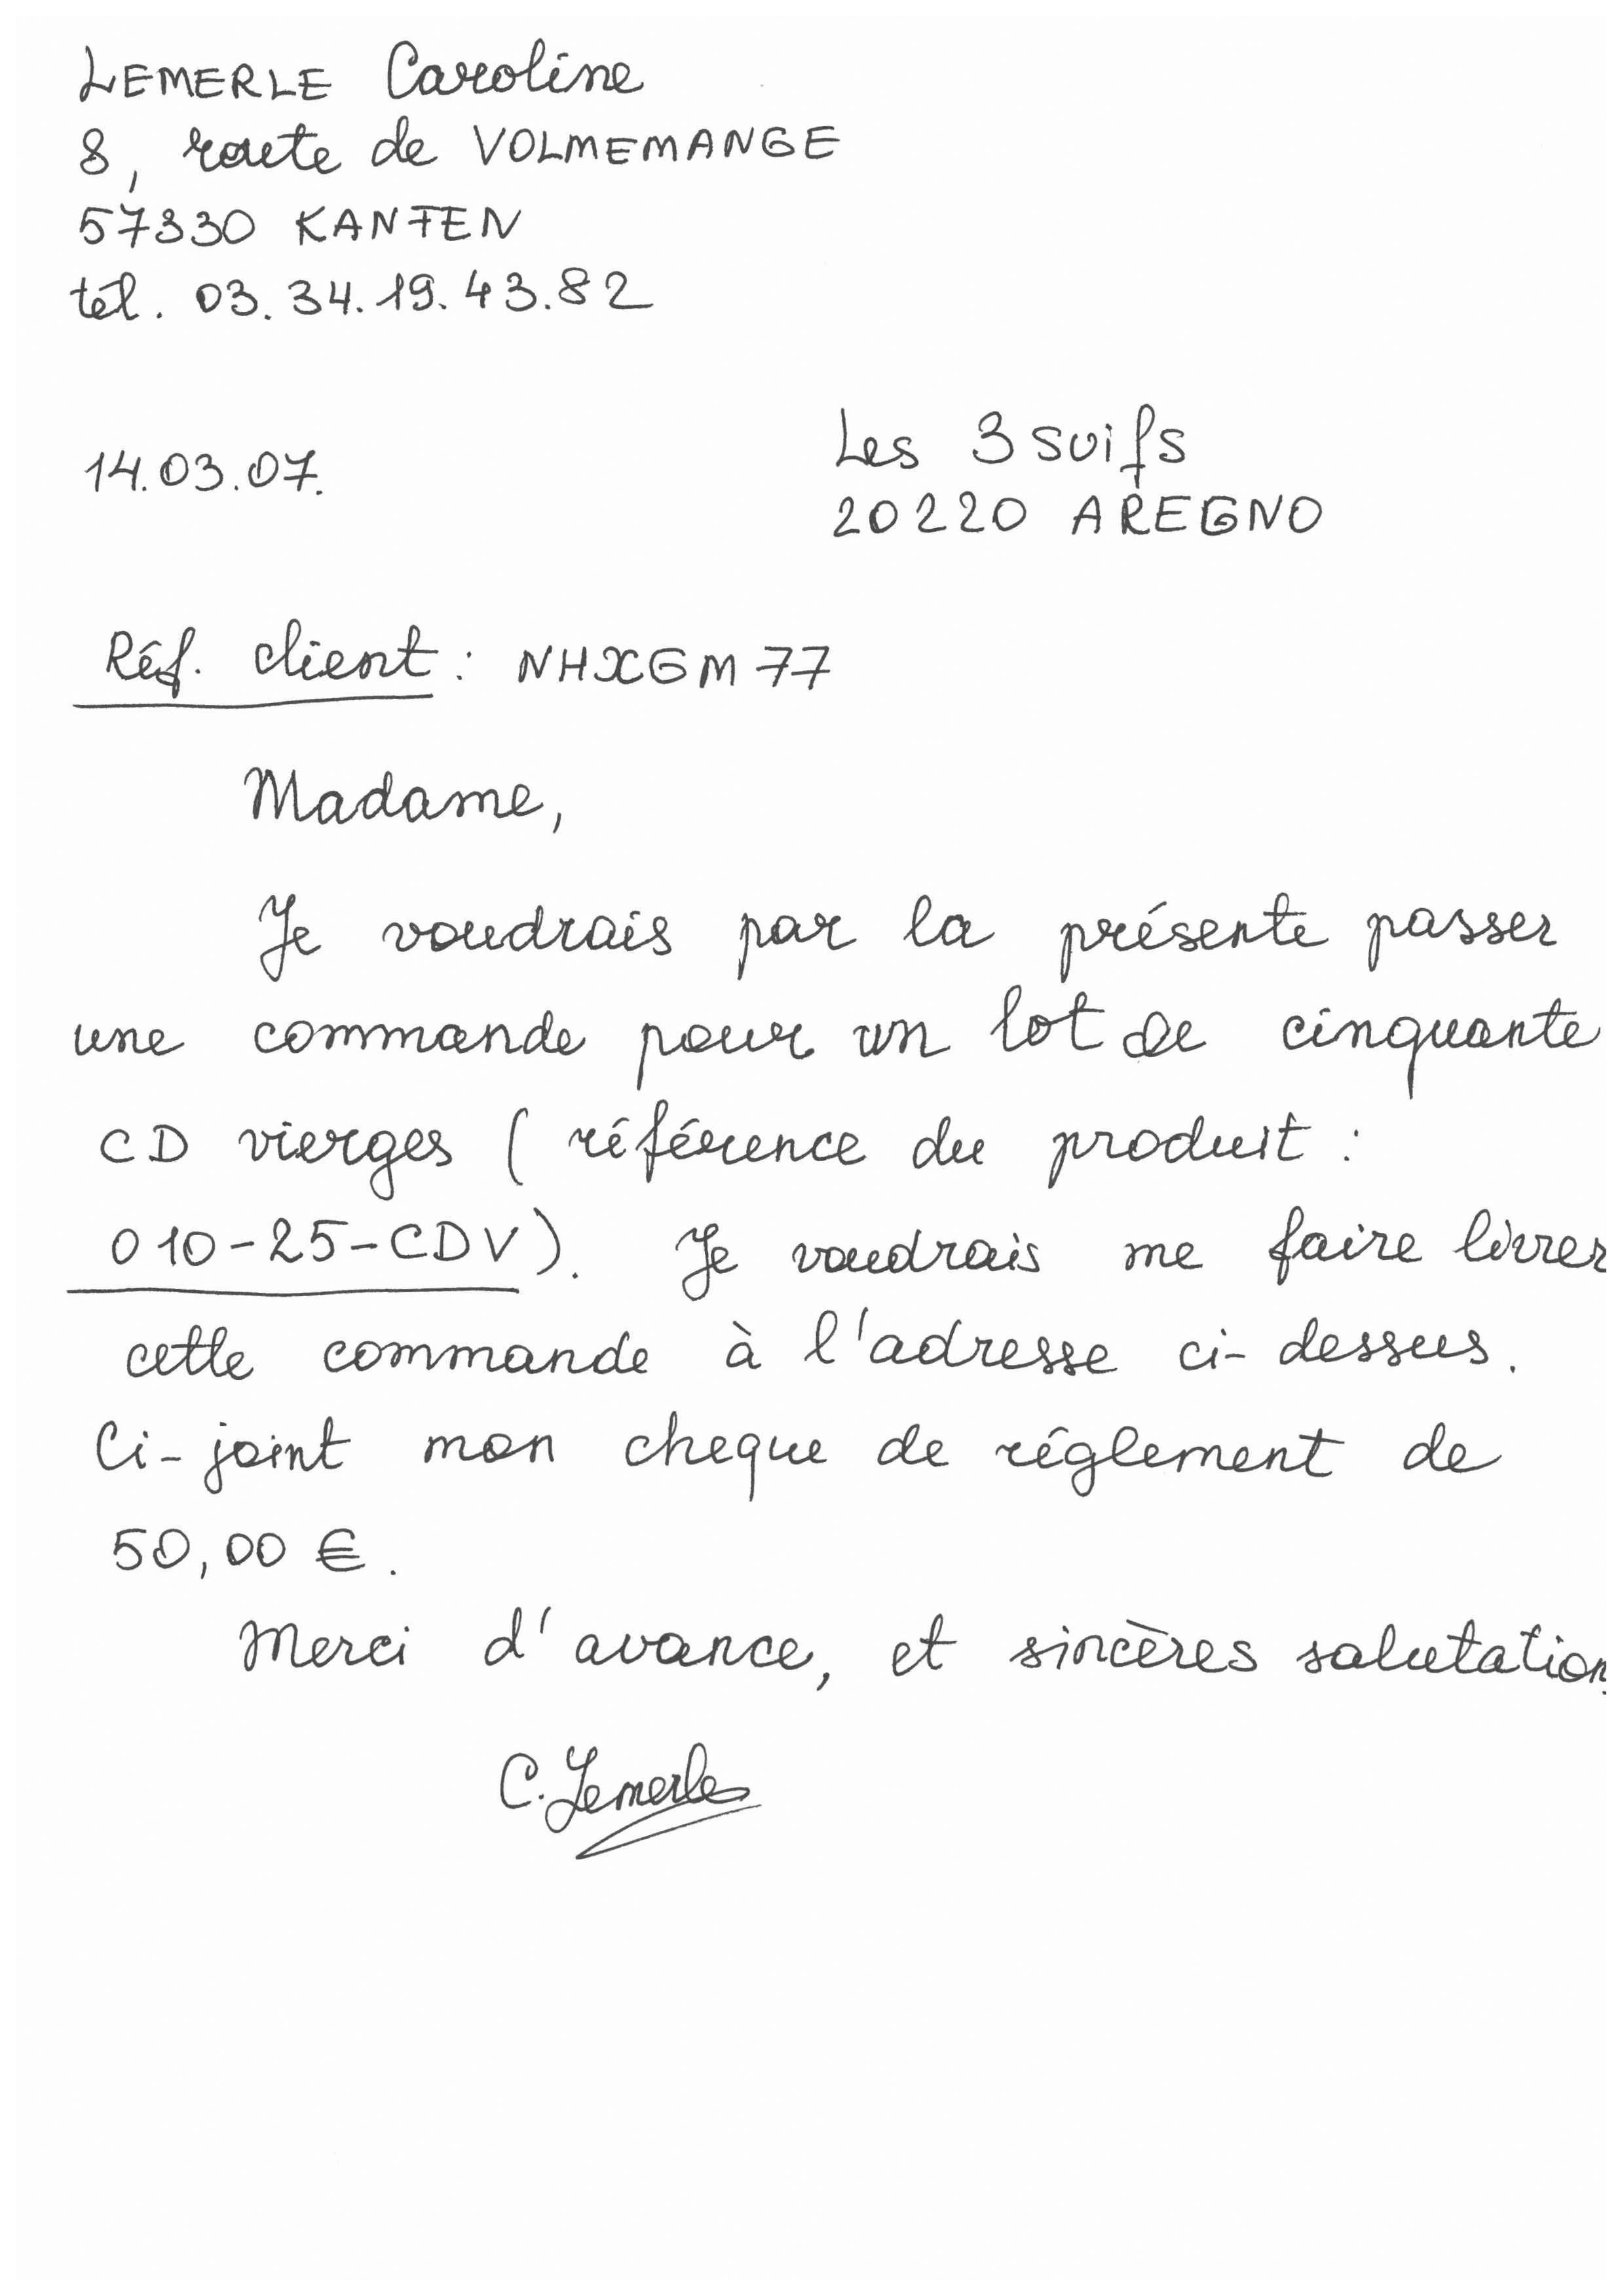 LEMERLE Caroline
8, route de VOLMEMANGE
57330 KANFEN
tél. 03.34.19.43.82
14.03.07.
Les 3 suifs
20220 AREGNO
Réf. client : NHXGM77
Madame,
Je voudrais par la présente passer
une commande pour un lot de cinquante
CD vierges ( référence du produit :
010-25-CDV). Je voudrais me faire livrer
cette commande à l'adresse ci-dessus.
Ci-joint mon cheque de réglement de
50,00 €.
Merci d'avance, et sincères salutation
C. Lemerle